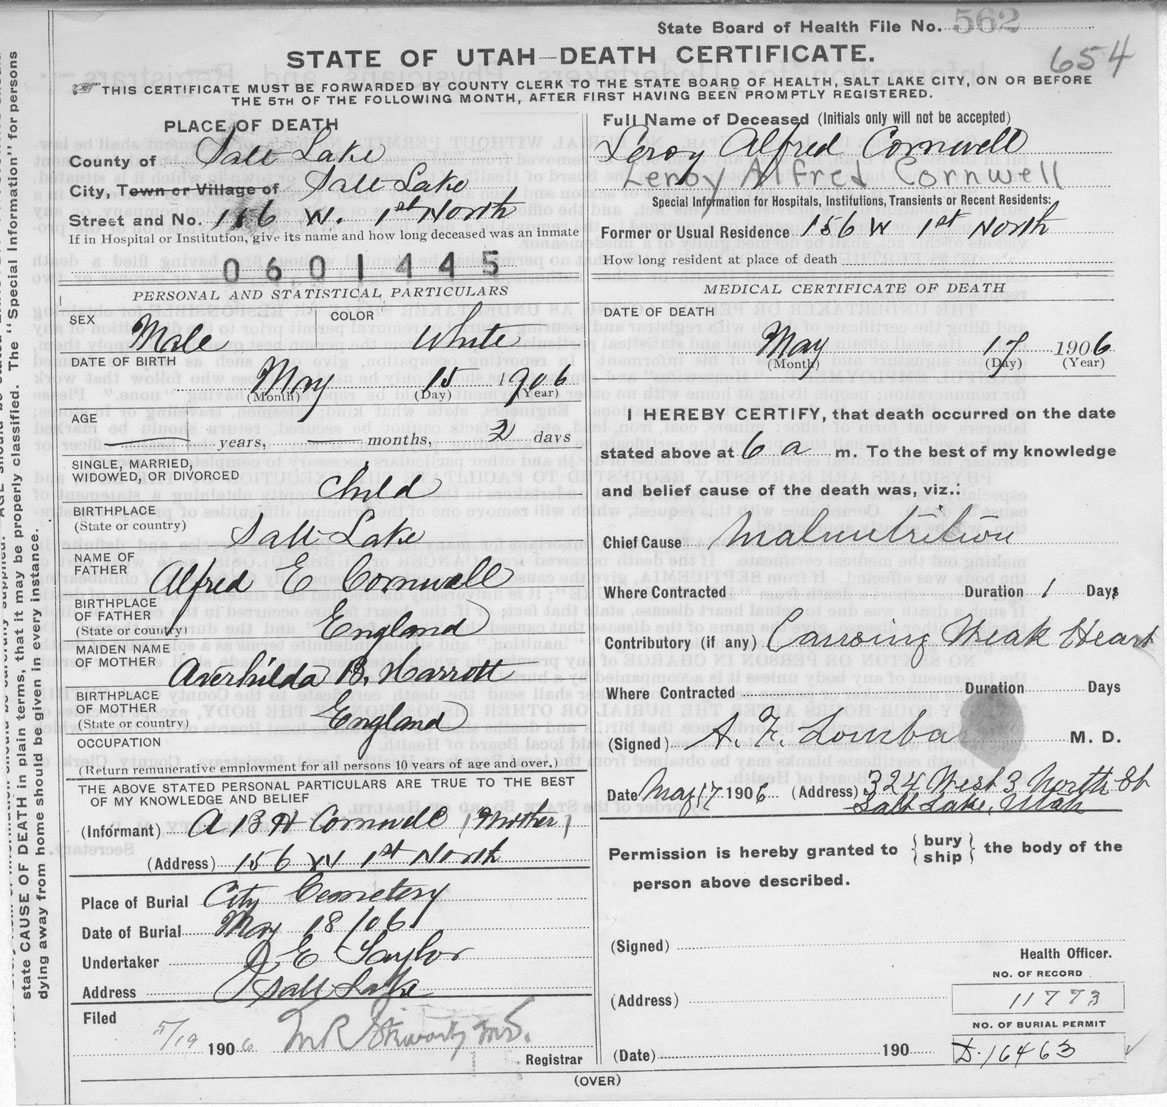 State Board of Health File No. 562
654
STATE OF UTAH—DEATH CERTIFICATE.
THIS CERTIFICATE MUST BE FORWARDED BY COUNTY CLERK TO THE STATE BOARD OF HEALTH, SALT LAKE CITY, ON OR BEFORE
THE 5TH OF THE FOLLOWING MONTH, AFTER FIRST HAVING BEEN PROMPTLY REGISTERED.
PLACE OF DEATH
County of Salt Lake
City, Town or Village of Salt Lake
Street and No. 156 W. 1st North
If in Hospital or Institution, give its name and how long deceased was an inmate
0601445
Full Name of Deceased (Initials only will not be accepted)
Leroy Alfred Cornwell
Leroy Alfred Cornwell
Special Information for Hospitals, Institutions, Transients or Recent Residents:
Former or Usual Residence 156 W 1st North
How long resident at place of death
PERSONAL AND STATISTICAL PARTICULARS
SEX Male COLOR White
DATE OF BIRTH May 15 1906
(Month) (Day) (Year)
AGE
years, months, 2 days
SINGLE, MARRIED,
WIDOWED, OR DIVORCED Child
BIRTHPLACE
(State or country) Salt Lake
NAME OF
FATHER Alfred E Cornwell
BIRTHPLACE
OF FATHER
(State or country) England
MAIDEN NAME
OF MOTHER Averhilda B. Harrott
BIRTHPLACE
OF MOTHER
(State or country) England
OCCUPATION
(Return remunerative employment for all persons 10 years of age and over.)
THE ABOVE STATED PERSONAL PARTICULARS ARE TRUE TO THE BEST
OF MY KNOWLEDGE AND BELIEF
(Informant) A B H Cornwell (Mother)
(Address) 156 W 1st North
Place of Burial City Cemetery
Date of Burial May 18/06
Undertaker E Taylor
Address Salt Lake
Filed
5/19 1906
Registrar
MEDICAL CERTIFICATE OF DEATH
DATE OF DEATH
May 17 1906
(Month) (Day) (Year)
I HEREBY CERTIFY, that death occurred on the date
stated above at 6 a m. To the best of my knowledge
and belief cause of the death was, viz.:
Chief Cause Malnutrition
Where Contracted Duration 1 Days
Contributory (if any) Causing Weak Heart
Where Contracted Duration Days
(Signed) A. F. M. D.
Date May 17 1906 (Address) 324 West 3 North St
Salt Lake, Utah
Permission is hereby granted to { bury ship } the body of the
person above described.
(Signed)
Health Officer.
NO. OF RECORD
(Address) 11773
NO. OF BURIAL PERMIT
(Date) 190 D.16463
(OVER)
state CAUSE OF DEATH in plain terms, that it may be properly classified. The "Special Information" for persons
dying away from home should be given in every instance.